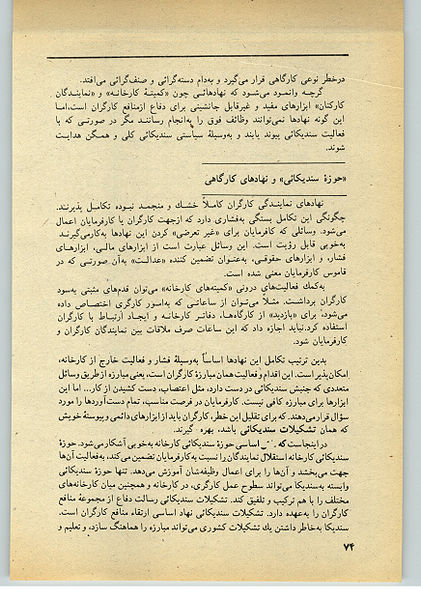 درخطر نوعی کارگاهی قرار می‌گیرد و به‌دام دسته‌گرائی و صنف‌گرائی می‌افتد.
گرچه وانمود می‌شود که نهادهائی چون «کمیتهٔ کارخانه» و «نمایندگان
کارکنان» ابزارهای مفید و غیرقابل جانشینی برای دفاع ازمنافع کارگران است،اما
این گونه نهادها نمی‌توانند وظائف فوق را به‌انجام رسانند مگر در صورتی که با
فعالیت سندیکائی پیوند یابند و به‌وسیلهٔ سیاستی سندیکائی کلی و همگن هدایت
شوند.
«حوزهٔ سندیکائی» و نهادهای کارگاهی
نهادهای نمایندگی کارگران کاملاً خشک و منجمد نبوده تکامل پذیرند.
چگونگی این تکامل بستگی به‌فشاری دارد که ازجهت کارگران یا کارفرمایان اعمال
می‌شود. وسائلی که کارفرمایان برای «غیر تعرضی» کردن این نهادها به‌کارمی‌گیرند
به‌خوبی قابل رؤیت است. این وسائل عبارت است از ابزارهای مالی، ابزارهای
فشار، و ابزارهای حقوقی، به‌عنوان تضمین کننده «عدالت» به‌آن صورتی که در
قاموس کارفرمایان معنی شده است.
به‌کمک فعالیت‌های درونی «کمیته‌های کارخانه» می‌توان قدم‌های مثبتی به‌سود
کارگران برداشت. مثلاً می‌توان از ساعاتی که به‌امور کارگری اختصاص داده
می‌شود، برای «بازدید» از کارگاه‌ها، دفاتر کارخانه و ایجاد ارتباط با کارگران
استفاده کرد.نباید اجازه داد که این ساعات صرف ملاقات بین نمایندگان کارگران و
کارفرمایان شود.
بدین ترتیب تکامل این نهادها اساساً به‌وسیلهٔ فشار و فعالیت خارج از کارخانه،
امکان‌پذیر است. این اقدام و فعالیت همان مبارزهٔ کارگران است، یعنی مبارزه ازطریق وسائل
متعددی که جنبش سندیکائی در دست دارد، مثل اعتصاب، دست کشیدن از کار... اما این
ابزارها برای مبارزه کافی نیست. کارفرمایان در فرصت مناسب، تمام دست‌آوردها را مورد
سؤال قرار می‌دهند. که برای تقلیل این خطر، کارگران باید از ابزارهای دائمی و پیوستهٔ خویش
که همان تشکیلات سندیکائی باشد، بهره گیرند.
دراینجاست که اساسی حوزهٔ سندیکائی کارخانه به‌خوبی آشکارمی‌شود. حوزهٔ
سندیکائی کارخانه استقلال نمایندگان را نسبت به‌کارفرمایان تضمین می‌کند، به‌فعالیت آن‌ها
جهت می‌بخشد و آن‌ها را برای اعمال وظیفه‌شان آموزش می‌دهد. تنها حوزهٔ سندیکائی
وابسته به‌سندیکا می‌تواند سطوح عمل کارگری، در کارخانه و همچنین میان کارخانه‌های
مختلف را با هم ترکیب و تلفیق کند. تشکیلات سندیکائی رسالت دفاع از مجموعهٔ منافع
کارگران را به‌عهده دارد. تشکیلات سندیکائی نهاد اساسی ارتقاء منافع کارگران است.
سندیکا به‌خاطر داشتن یک تشکیلات کشوری می‌تواند مبارزه را هماهنگ سازد، و تعلیم و
۷۴